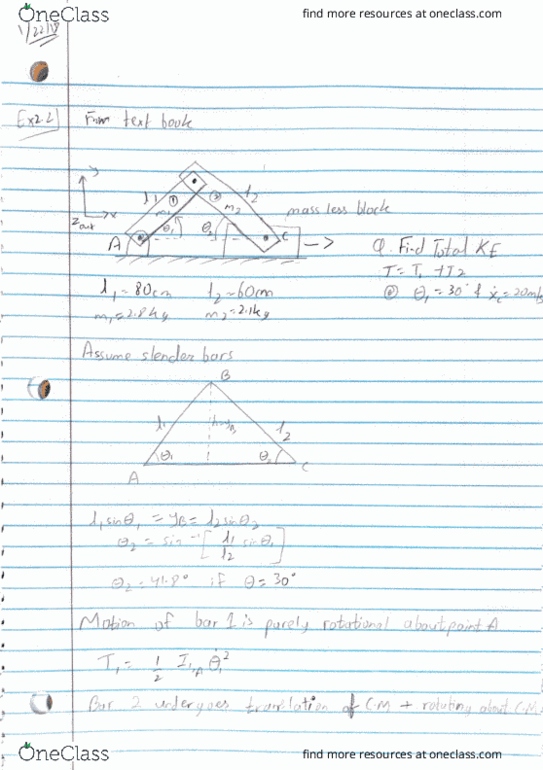 OneClass
find more resources at oneclass.com
1/22/18
Ex2.2
From text book
l1 ① m1 θ1
② m2 l2 θ2
mass less block
Zout x
A C
Q. Find Total KE
T = T1 + T2
@ θ1 = 30° & ẋc = 20m/s
l1 = 80cm l2 = 60cm
m1 = 2.8kg m2 = 2.1kg
Assume slender bars
B
l1 l2
θ1 θ2
A C
l1 sinθ1 = yB = l2 sinθ2
θ2 = sin⁻¹[l1/l2 sinθ1]
θ2 = 41.8° if θ = 30°
Motion of bar 1 is purely rotational about point A
T1 = 1/2 I1,A θ̇1²
Bar 2 undergoes translation of C.M + rotating about C.M.
OneClass
find more resources at oneclass.com